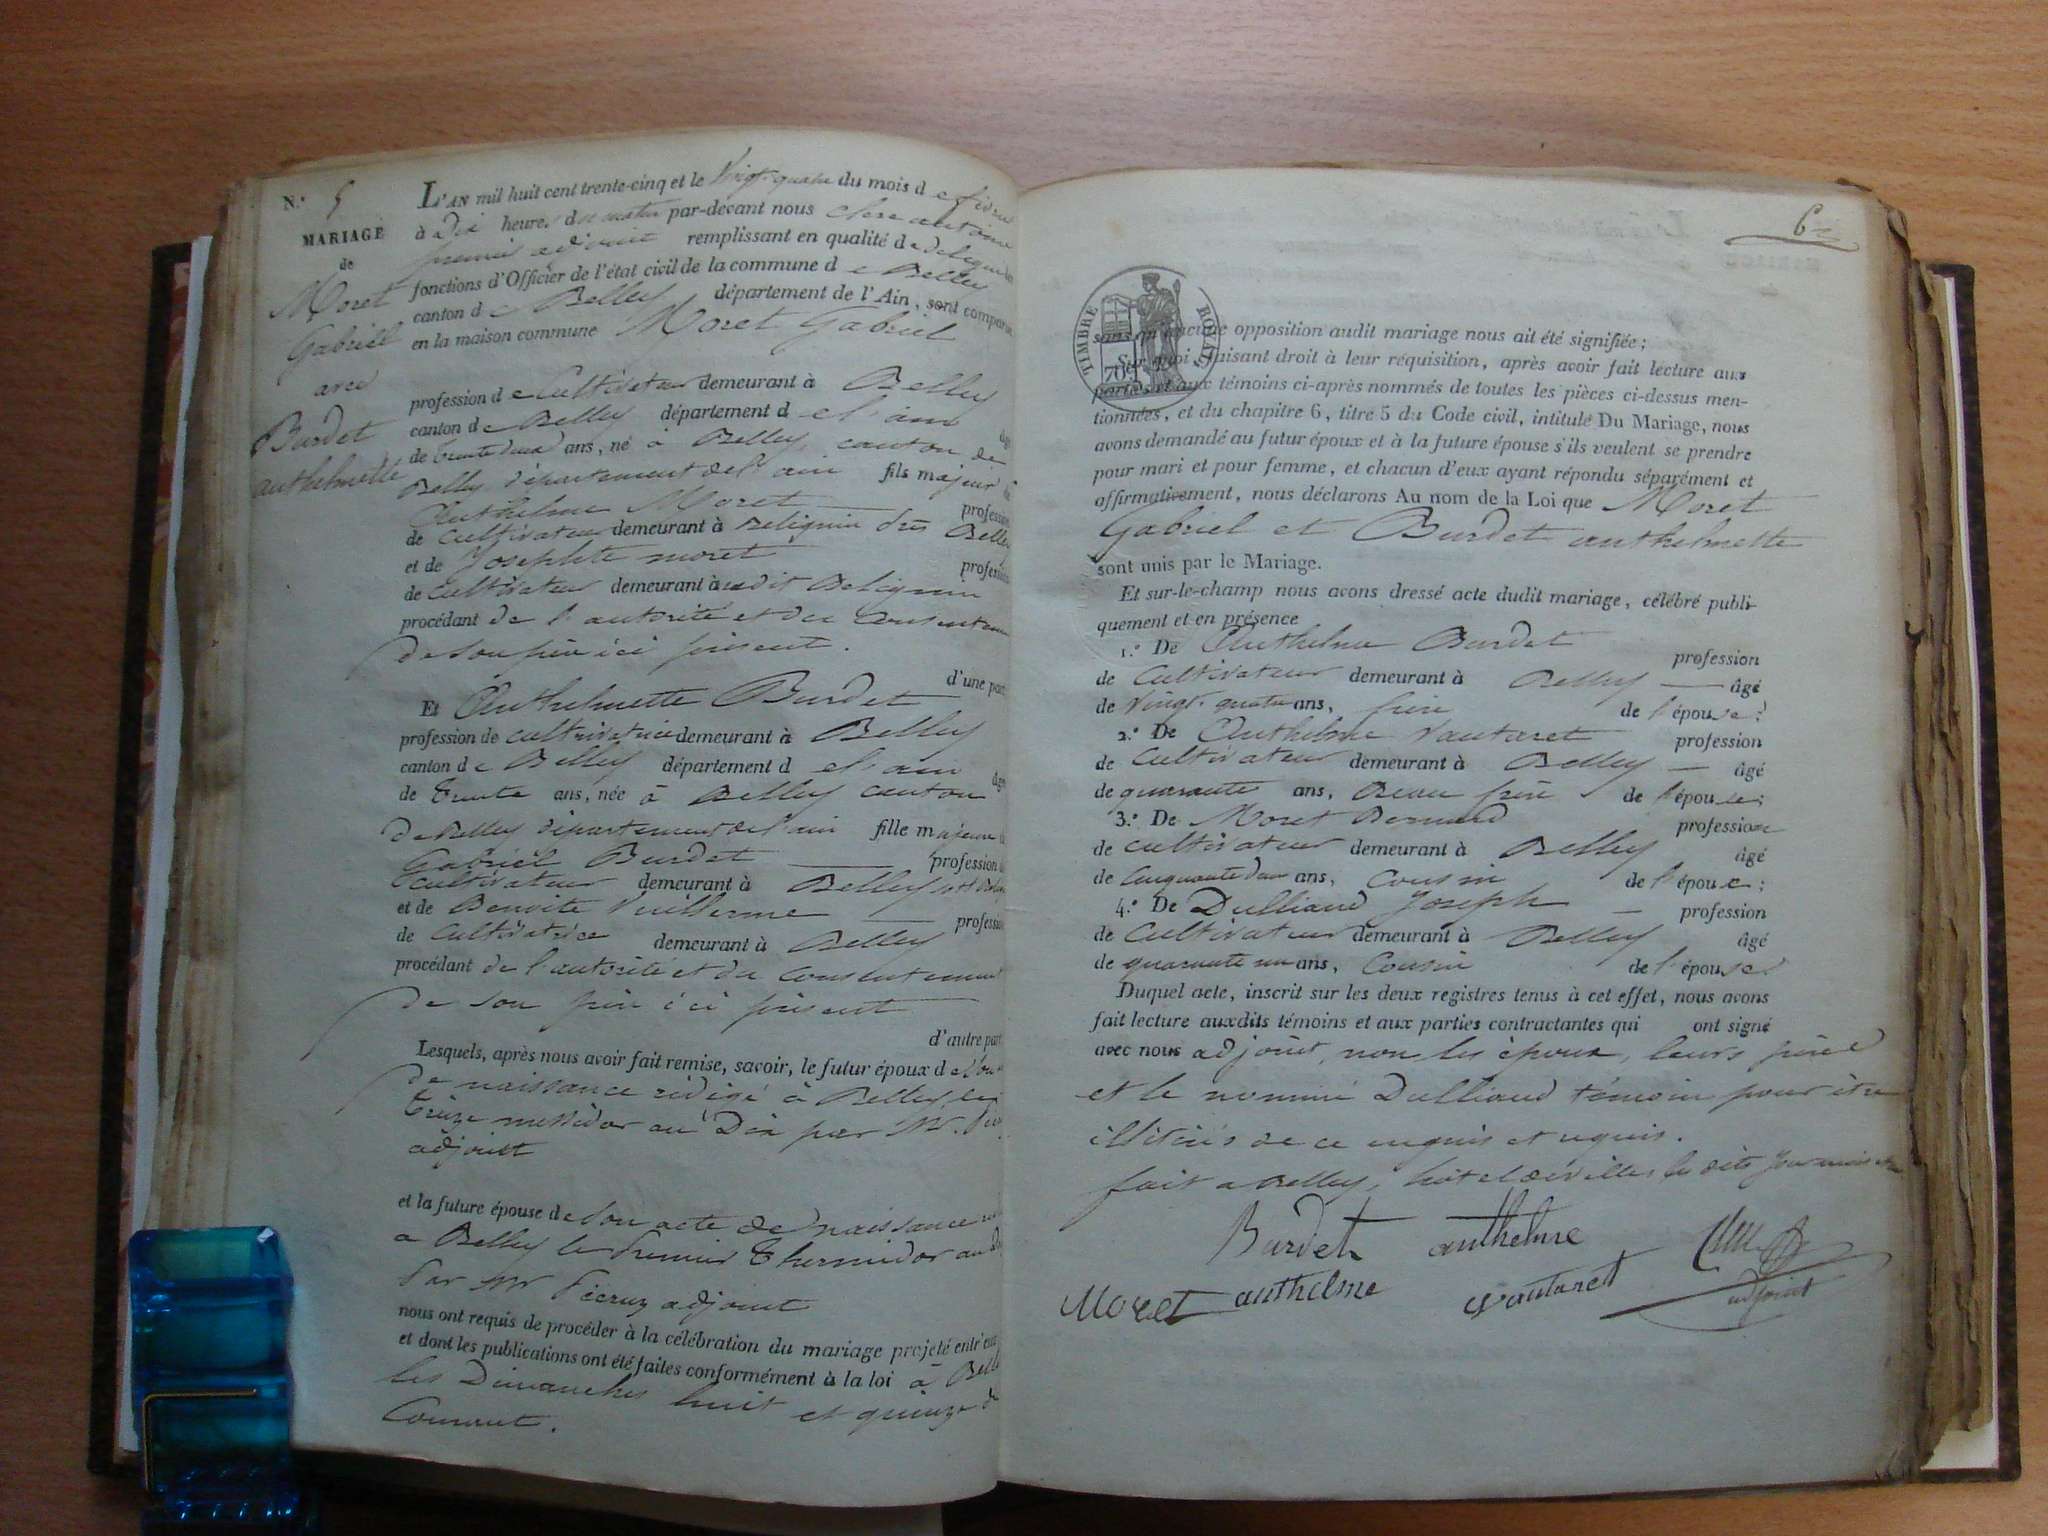 N.° 5
MARIAGE
de
Moret
Gabriel
avec
Burdet
anthelmette
L'AN mil huit cent trente-cinq et le Vingt-quatre du mois de
à Dix heures du matin par-devant nous antoine
premier adjoint remplissant en qualité de délégué
fonctions d'Officier de l'état civil de la commune de Belley
canton de Belley département de l'Ain, sont comparus
en la maison commune Moret Gabriel
profession de Cultivateur demeurant à Belley
canton de Belley département de l'ain âgé
de trente deux ans, né à Belley canton de
Belley département de l'ain fils majeur
Anthelme Moret profession
de Cultivateur demeurant à Belignin Belley
et de Josephte moret profession
de Cultivateur demeurant à udit Belignin
procédant de l'autorité et du Consentement
de son père ici présent.
d'une part
Et Anthelmette Burdet
profession de cultivatrice demeurant à Belley
canton de Belley département de l'ain âgée
de trente ans, née à Belley canton
de Belley département de l'ain fille majeure
Gabriel Burdet profession
Cultivateur demeurant à Belley
et de Benoite Vuillerme profession
de Cultivatrice demeurant à Belley
procédant de l'autorité et du Consentement
de son père ici présent
d'autre part
Lesquels, après nous avoir fait remise, savoir, le futur époux de son
de naissance rédigé à Belley le
treize messidor an Dix par Mr.
adjoint
et la future épouse de son acte de naissance
a Belley le premier thermidor an
par mr adjoint
nous ont requis de procéder à la célébration du mariage projeté entr'eux
et dont les publications ont été faites conformément à la loi à
les Dimanches huit et quinze du
Courant.
6
TIMBRE ROYAL
70
sans qu'aucune opposition audit mariage nous ait été signifiée ;
Sur quoi faisant droit à leur réquisition, après avoir fait lecture aux
parties et aux témoins ci-après nommés de toutes les pièces ci-dessus men-
tionnées, et du chapitre 6, titre 5 du Code civil, intitulé Du Mariage, nous
avons demandé au futur époux et à la future épouse s'ils veulent se prendre
pour mari et pour femme, et chacun d'eux ayant répondu séparément et
affirmativement, nous déclarons Au nom de la Loi que Moret
Gabriel et Burdet anthelmette
sont unis par le Mariage.
Et sur-le-champ nous avons dressé acte dudit mariage, célébré publi-
quement et en présence
1.° De Anthelme Burdet profession
de Cultivateur demeurant à Belley âgé
de Vingt-quatre ans, frère de l'épouse ;
2.° De Anthelme Vautaret profession
de Cultivateur demeurant à Belley âgé
de quarante ans, Beau frère de l'épouse ;
3.° De Moret Bernard profession
de cultivateur demeurant à Belley âgé
de Cinquante deux ans, Cousin de l'épouse ;
4.° De Dulliand Joseph profession
de Cultivateur demeurant à Belley âgé
de quarante un ans, Cousin de l'épouse
Duquel acte, inscrit sur les deux registres tenus à cet effet, nous avons
fait lecture auxdits témoins et aux parties contractantes qui ont signé
avec nous adjoint, non les époux, leurs pères
et le nommé Dulliand témoin pour être
illitérés de ce enquis et requis.
fait a Belley, hotel de ville, les dits jour mois
Burdet anthelme
Moret anthelme vautaret
adjoint